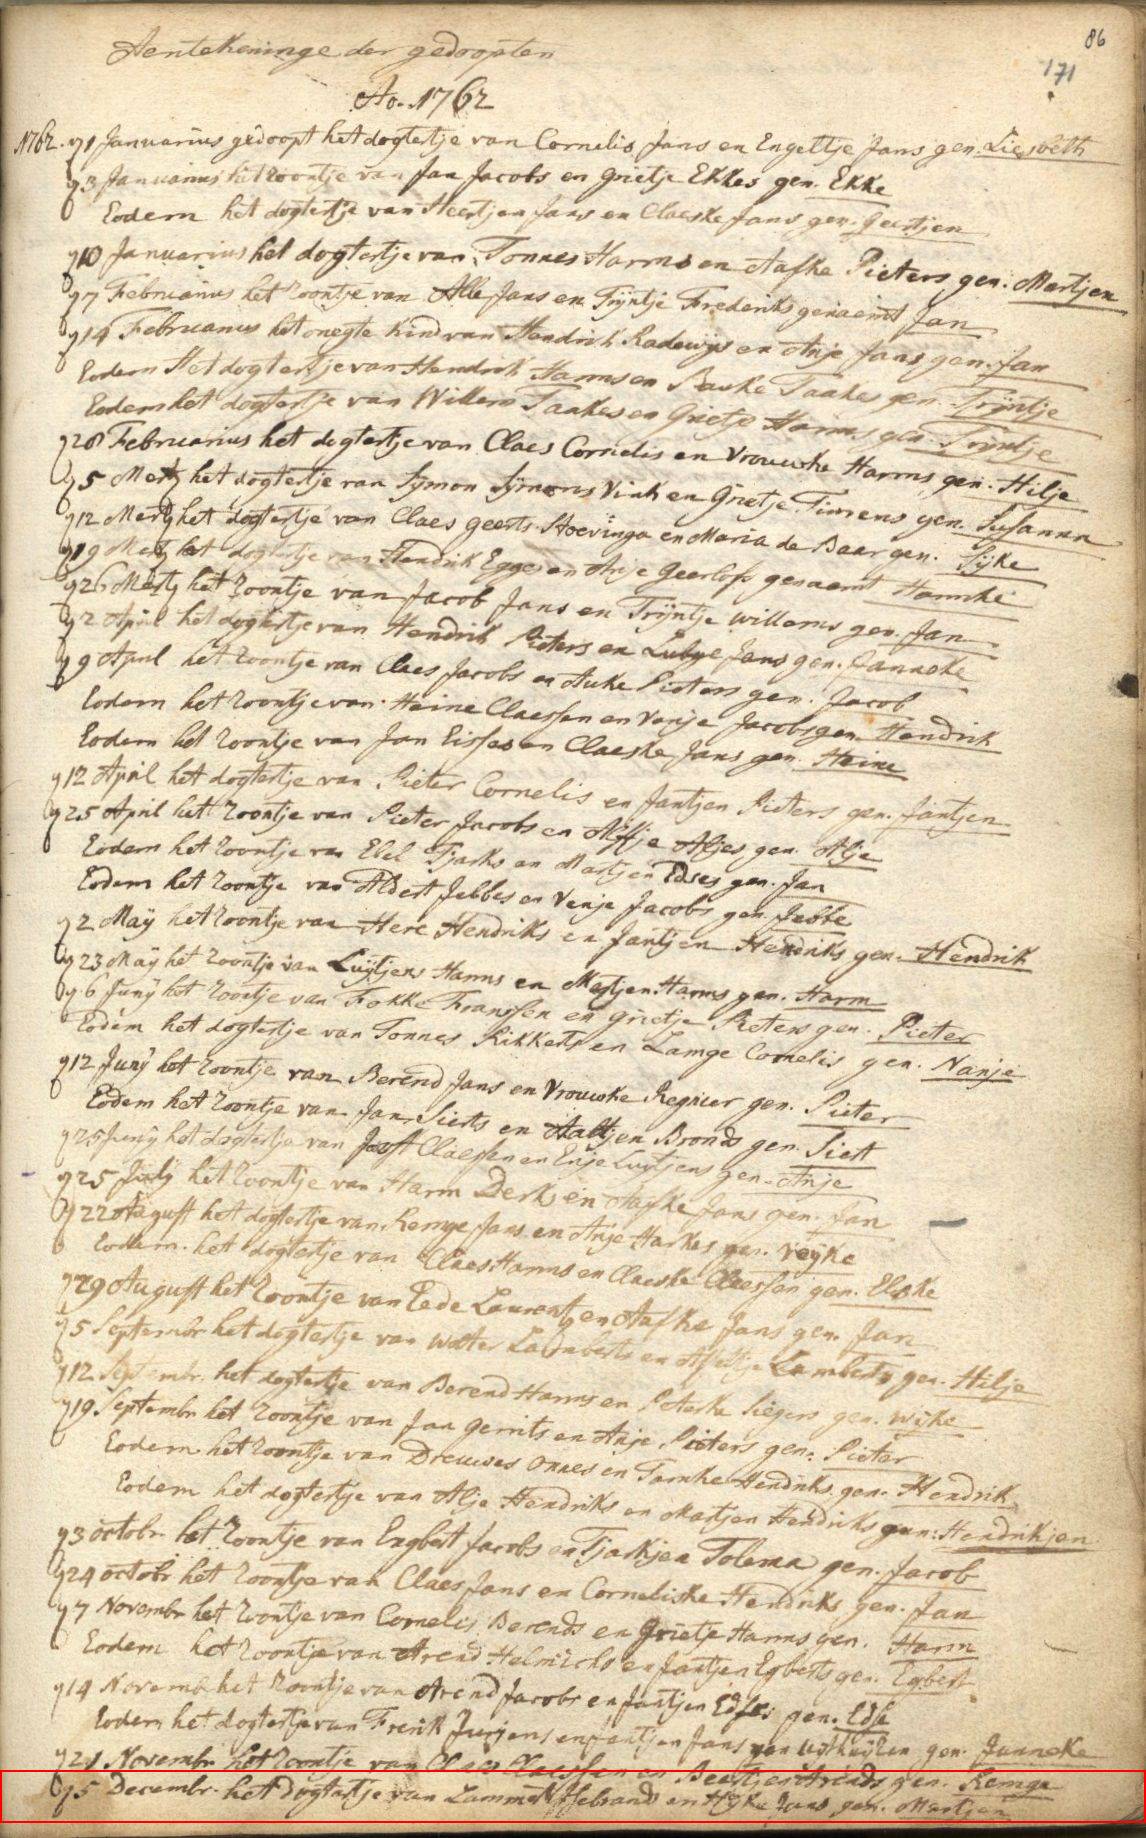 86
171
Aentekeninge der gedoopten
Ao. 1762
1762. d 1 Januarius gedoopt het dogtertje van Cornelis Jans en Engeltje Jans gen. Liesbeth
d 3 Januarius het zoontje van Jan Jacobs en Grietje Ekkes gen. Ekke
Eodem het dogtertje van Heertjen Jans en Claeske Jans gen. Geertjen
d 10 Januarius het dogtertje van Tonnes Harms en Aafke Pieters gen. Martjen
d 7 Februarius het zoontje van Alle Jans en Trijntje Frederiks genaemt Jan
d 14 Februarius het onegte Kind van Hendrik Radewijs en Anje Jans gen. Jan
Eodem Het dogtertje van Hendrik Harms en Bauke Taakes gen. Trijntje
Eodem het dogtertje van Willem Taakes en Grietje Harms gen. Trijntje
d 28 Februarius het dogtertje van Claes Cornelis en Vrouwke Harms gen. Hilje
d 5 Mertz het dogtertje van Symon Symons Vink en Grietje Timens gen. Susanna
d 12 Mertz het dogtertje van Claes Geerts Hoevinga en Maria de Baar gen. Sijke
d 19 Mertz het dogtertje van Hendrik Egges en Anje Geerlofs genaemt Hannke
d 26 Mertz het zoontje van Jacob Jans en Trijntje Willems gen. Jan
d 2 April het dogtertje van Hendrik Pieters en Lubge Jans gen. Janneke
d 9 April het zoontje van Claes Jacobs en Auke Pieters gen. Jacob
Eodem het zoontje van Heine Claessen en Venje Jacobs gen. Hendrik
Eodem het zoontje van Jan Eisses en Claeske Jans gen. Heine
d 12 April het dogtertje van Pieter Cornelis en Jantjen Pieters gen. Jantjen
d 25 April het zoontje van Pieter Jacobs en Affje Aljes gen. Alje
Eodem het zoontje van Ebel Tjarks en Martjen Edses gen. Jan
Eodem het zoontje van Aldert Jebbes en Venje Jacobs gen. Jebbe
d 2 Maÿ het zoontje van Here Hendriks en Jantjen Hendriks gen. Hendrik
d 23 Maÿ het zoontje van Luijtjens Harms en Martjen Harms gen. Harm
d 6 Junÿ het zoontje van Fokke Franssen en Grietje Pieters gen. Pieter
Eodem het dogtertje van Tonnes Rikkerts en Lamge Cornelis gen. Nanje
d 12 Junÿ het zoontje van Berend Jans en Vrouwke Regnier gen. Pieter
Eodem het zoontje van Jan Sierts en Aaltjen Bronds gen. Siert
d 25 Junÿ het dogtertje van Joost Claessen en Enje Luitjens gen. Anje
d 25 July het zoontje van Harm Derks en Aafke Jans gen. Jan
d 22 August het dogtertje van Remge Jans en Anje Harkes gen. Veyke
Eodem het dogtertje van Claes Harms en Claeske Claessen gen. Elske
d 29 August het zoontje van Eede Laurents en Aafke Jans gen. Jan
d 5 Septembr. het dogtertje van Wolter Lamberts en Afeltje Lamberts gen. Hilje
d 12 Septembr. het dogtertje van Berend Harms en Peterke Siegers gen. Wijke
d 19 Septembr het zoontje van Jan Gerrits en Anje Pieters gen. Pieter
Eodem het zoontje van Dreuwes Onnes en Tamke Hendriks gen. Hendrik
Eodem het dogtertje van Alje Hendriks en Martjen Hendriks gen: Hendrikjen
d 3 octobr. het zoontje van Engbert Jacobs en Tjaikjen Tolema gen. Jacob
d 24 octobr het zoontje van Claes Jans en Corneliske Hendriks gen. Jan
d 7 Novembr het zoontje van Cornelis Berends en Grietje Harms gen. Harm
Eodem het zoontje van Arend Helmichs en Jantjen Egberts gen. Egbert
d 14 Novemb. het zoontje van Arend Jacobs en Jantjen Edses gen. Edse
Eodem het dogtertje van Frerik Jurjens en Jantjen Jans van Uijthuijsen gen. Janneke
d 21 Novembr het zoontje van Claes Claessen en Beertjen Arends gen. Remge
d 5 Decembr. het dogtertje van Lammert Jsebrands en Hijke Jans gen. Martjen